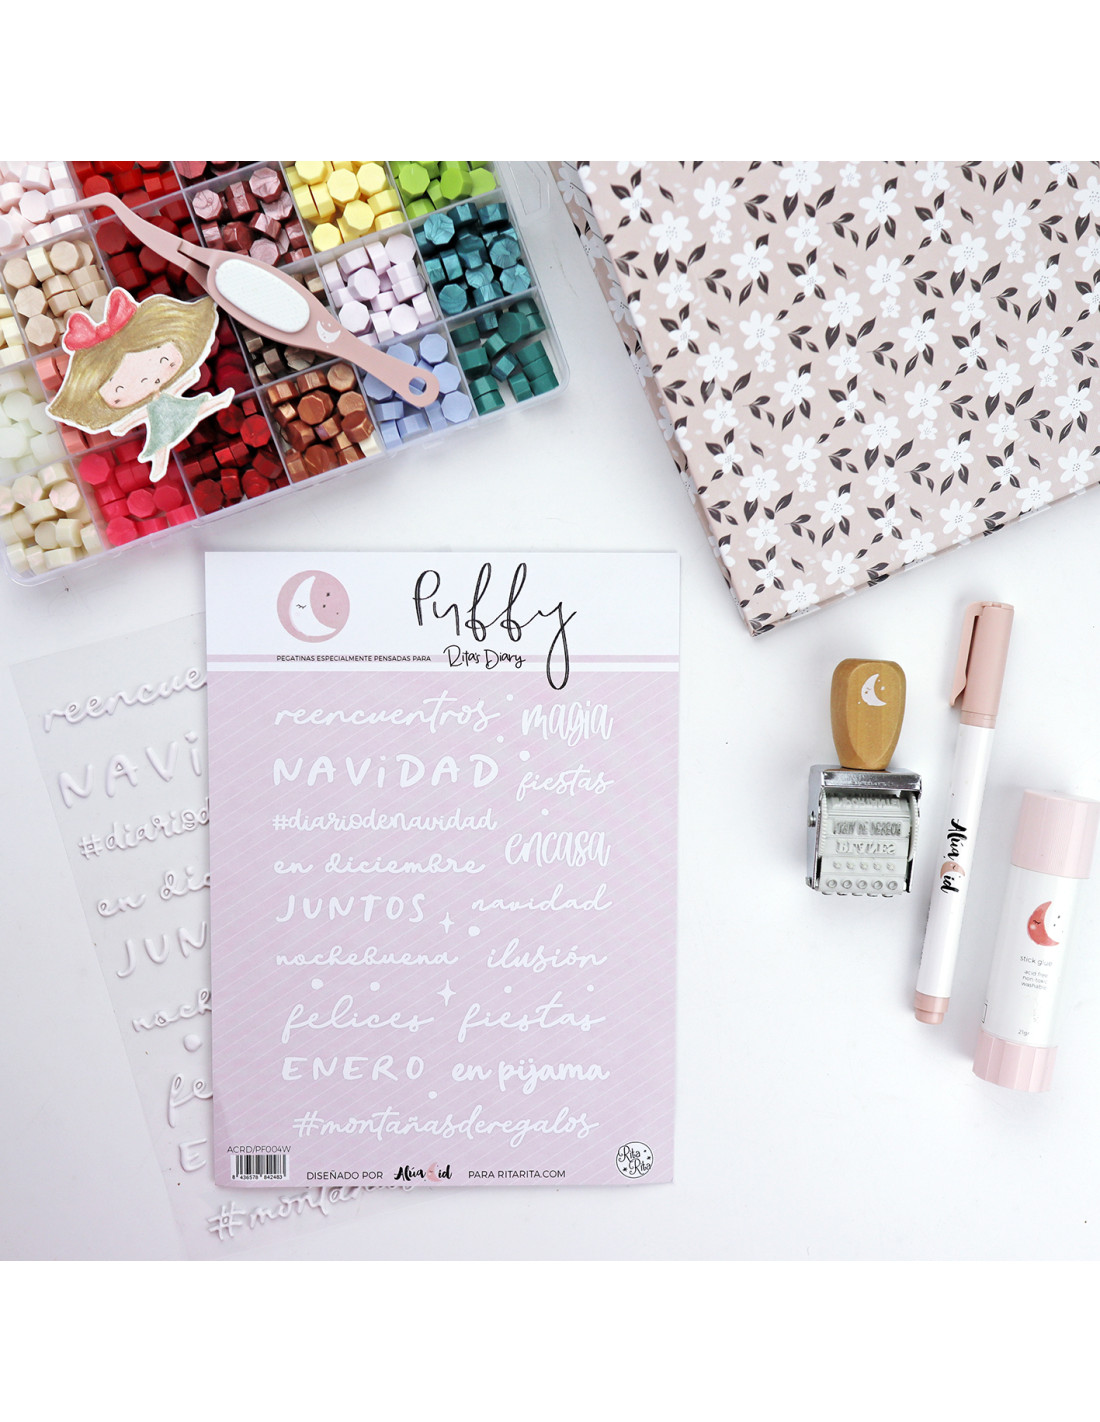 Puffy
PEGATINAS ESPECIALMENTE PENSADAS PARA Rita's Diary
reencuentros magia
NAViDAD
fiestas
#diariodenavidad
encasa
en diciembre
JUNTOS navidad
nochebuena ilusión
felices fiestas
ENERO en pijama
#montañasderegalos
ACRD/PF004W
8 436578 842483
DISEÑADO POR Alúa Cid PARA RITARITA.COM
Rita Rita
reencue
NAVi
#diariod
en dic
JUN
noch
fe
E
#montaña
Alúa Cid
stick glue
acid free
non toxic
washable
21gr